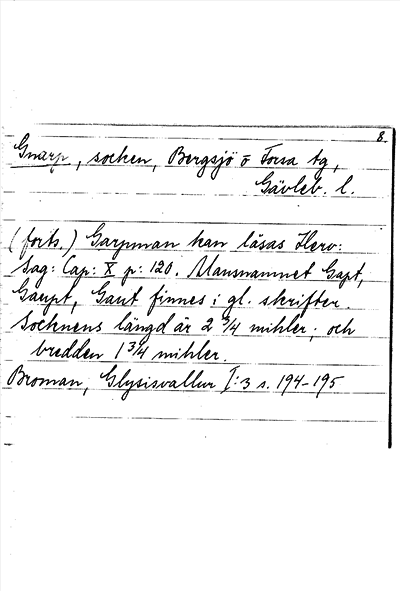 8.
Gnarp, socken, Bergsjö o Forsa tg,
Gävleb. l.
(forts.) Garpman kan läsas Herv:
Sag: Cap: X p: 120. Mansnamnet Gapt,
Garpt, Gaut finnes i gl. skrifter.
Socknens längd är 2 3/4 mihler; och
bredden 1 3/4 mihler.
Broman, Glysisvallur I:3 s. 194-195